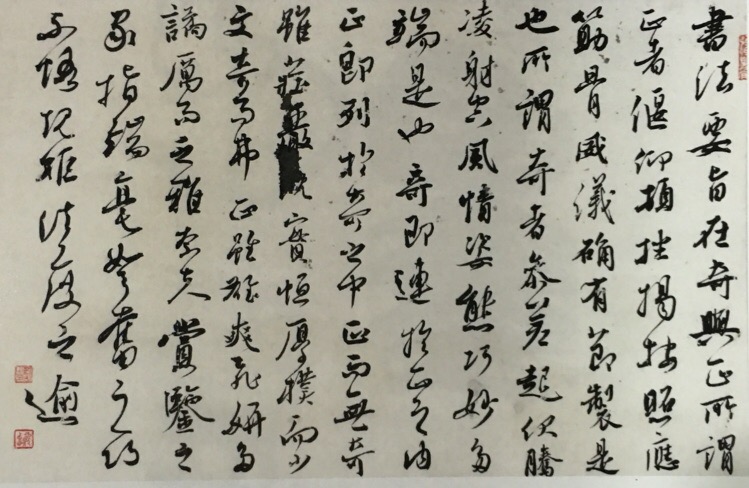 書法要旨在奇與正所謂
正者偃仰頓挫揭按照應
筋骨威儀确有節製是
也所謂奇者參差起伏騰
凌射空風情姿態巧妙多
端是也奇即連於正之內
正即列於奇之中正而無奇
雖莊嚴實恒厚樸而少
文奇而弗正雖雄爽飛妍多
譎厲而乏雅奈夫賞鑒之
家指端毫弩奮之巧
不悟規矩法度之逾